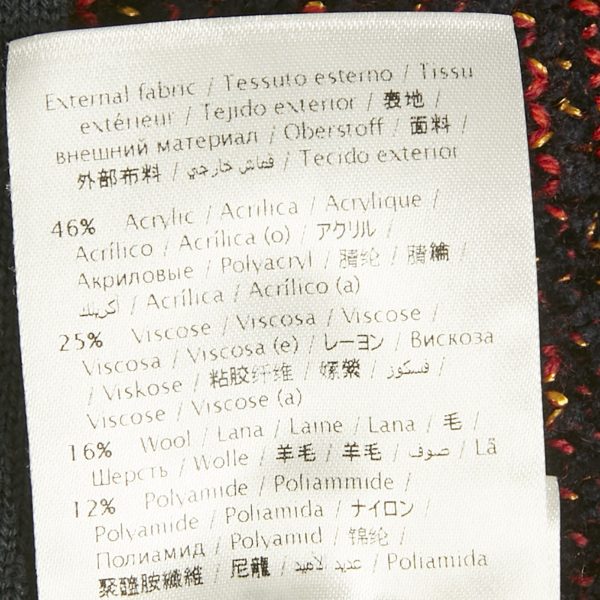 External fabric / Tessuto esterno / Tissu
extérieur / Tejido exterior / 表地 /
внешний материал / Oberstoff / 面料 /
外部布料 / قماش خارجي / Tecido exterior
46% Acrylic / Acrilica / Acrylique /
Acrílico / Acrílica (o) / アクリル /
Акриловые / Polyacryl / 腈纶 / 腈綸 /
أكريلك / Acrílica / Acrílico (a)
25% Viscose / Viscosa / Viscose /
Viscosa / Viscosa (e) / レーヨン / Вискоза
/ Viskose / 粘胶纤维 / 嫘縈 / فسكوز /
Viscose / Viscose (a)
16% Wool / Lana / Laine / Lana / 毛 /
Шерсть / Wolle / 羊毛 / 羊毛 / صوف / Lã
12% Polyamide / Poliammide /
Polyamide / Poliamida / ナイロン /
Полиамид / Polyamid / 锦纶 /
聚醯胺纖維 / 尼龍 / عديد الأميد / Poliamida